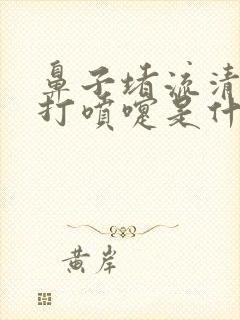 鼻子堵流清
打喷嚏是什
黄岸